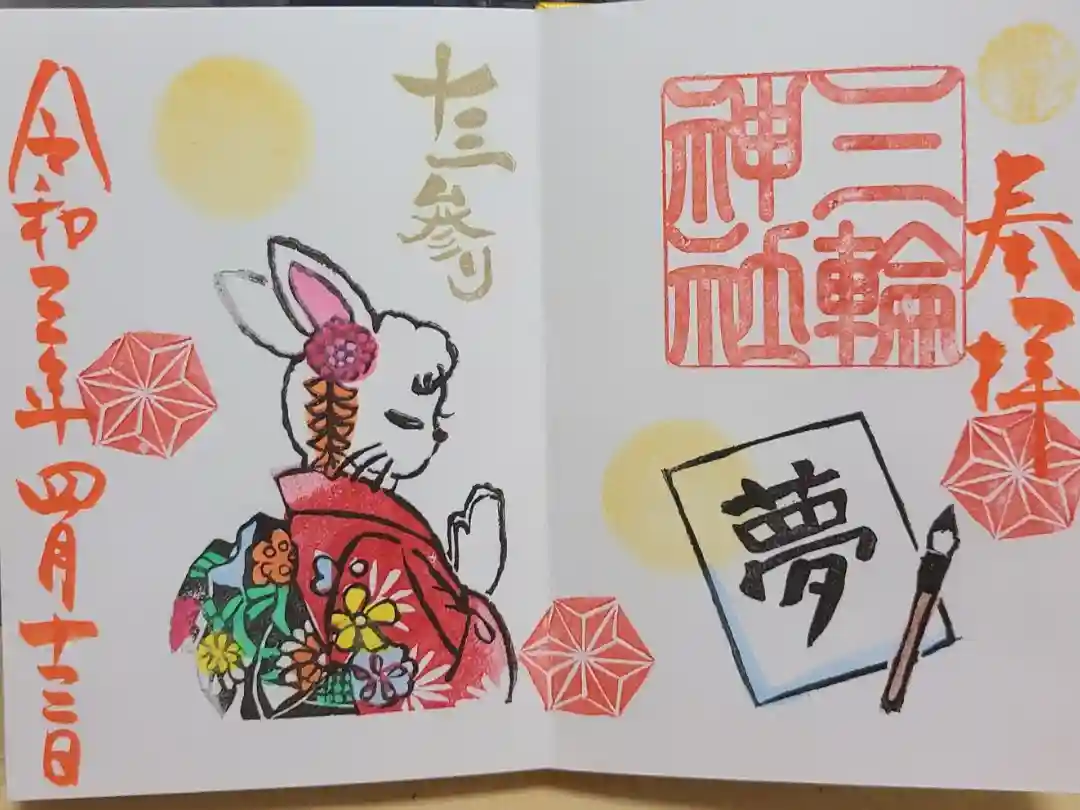 奉拝
三輪
神社
夢
十三參り
令和三年四月十三日